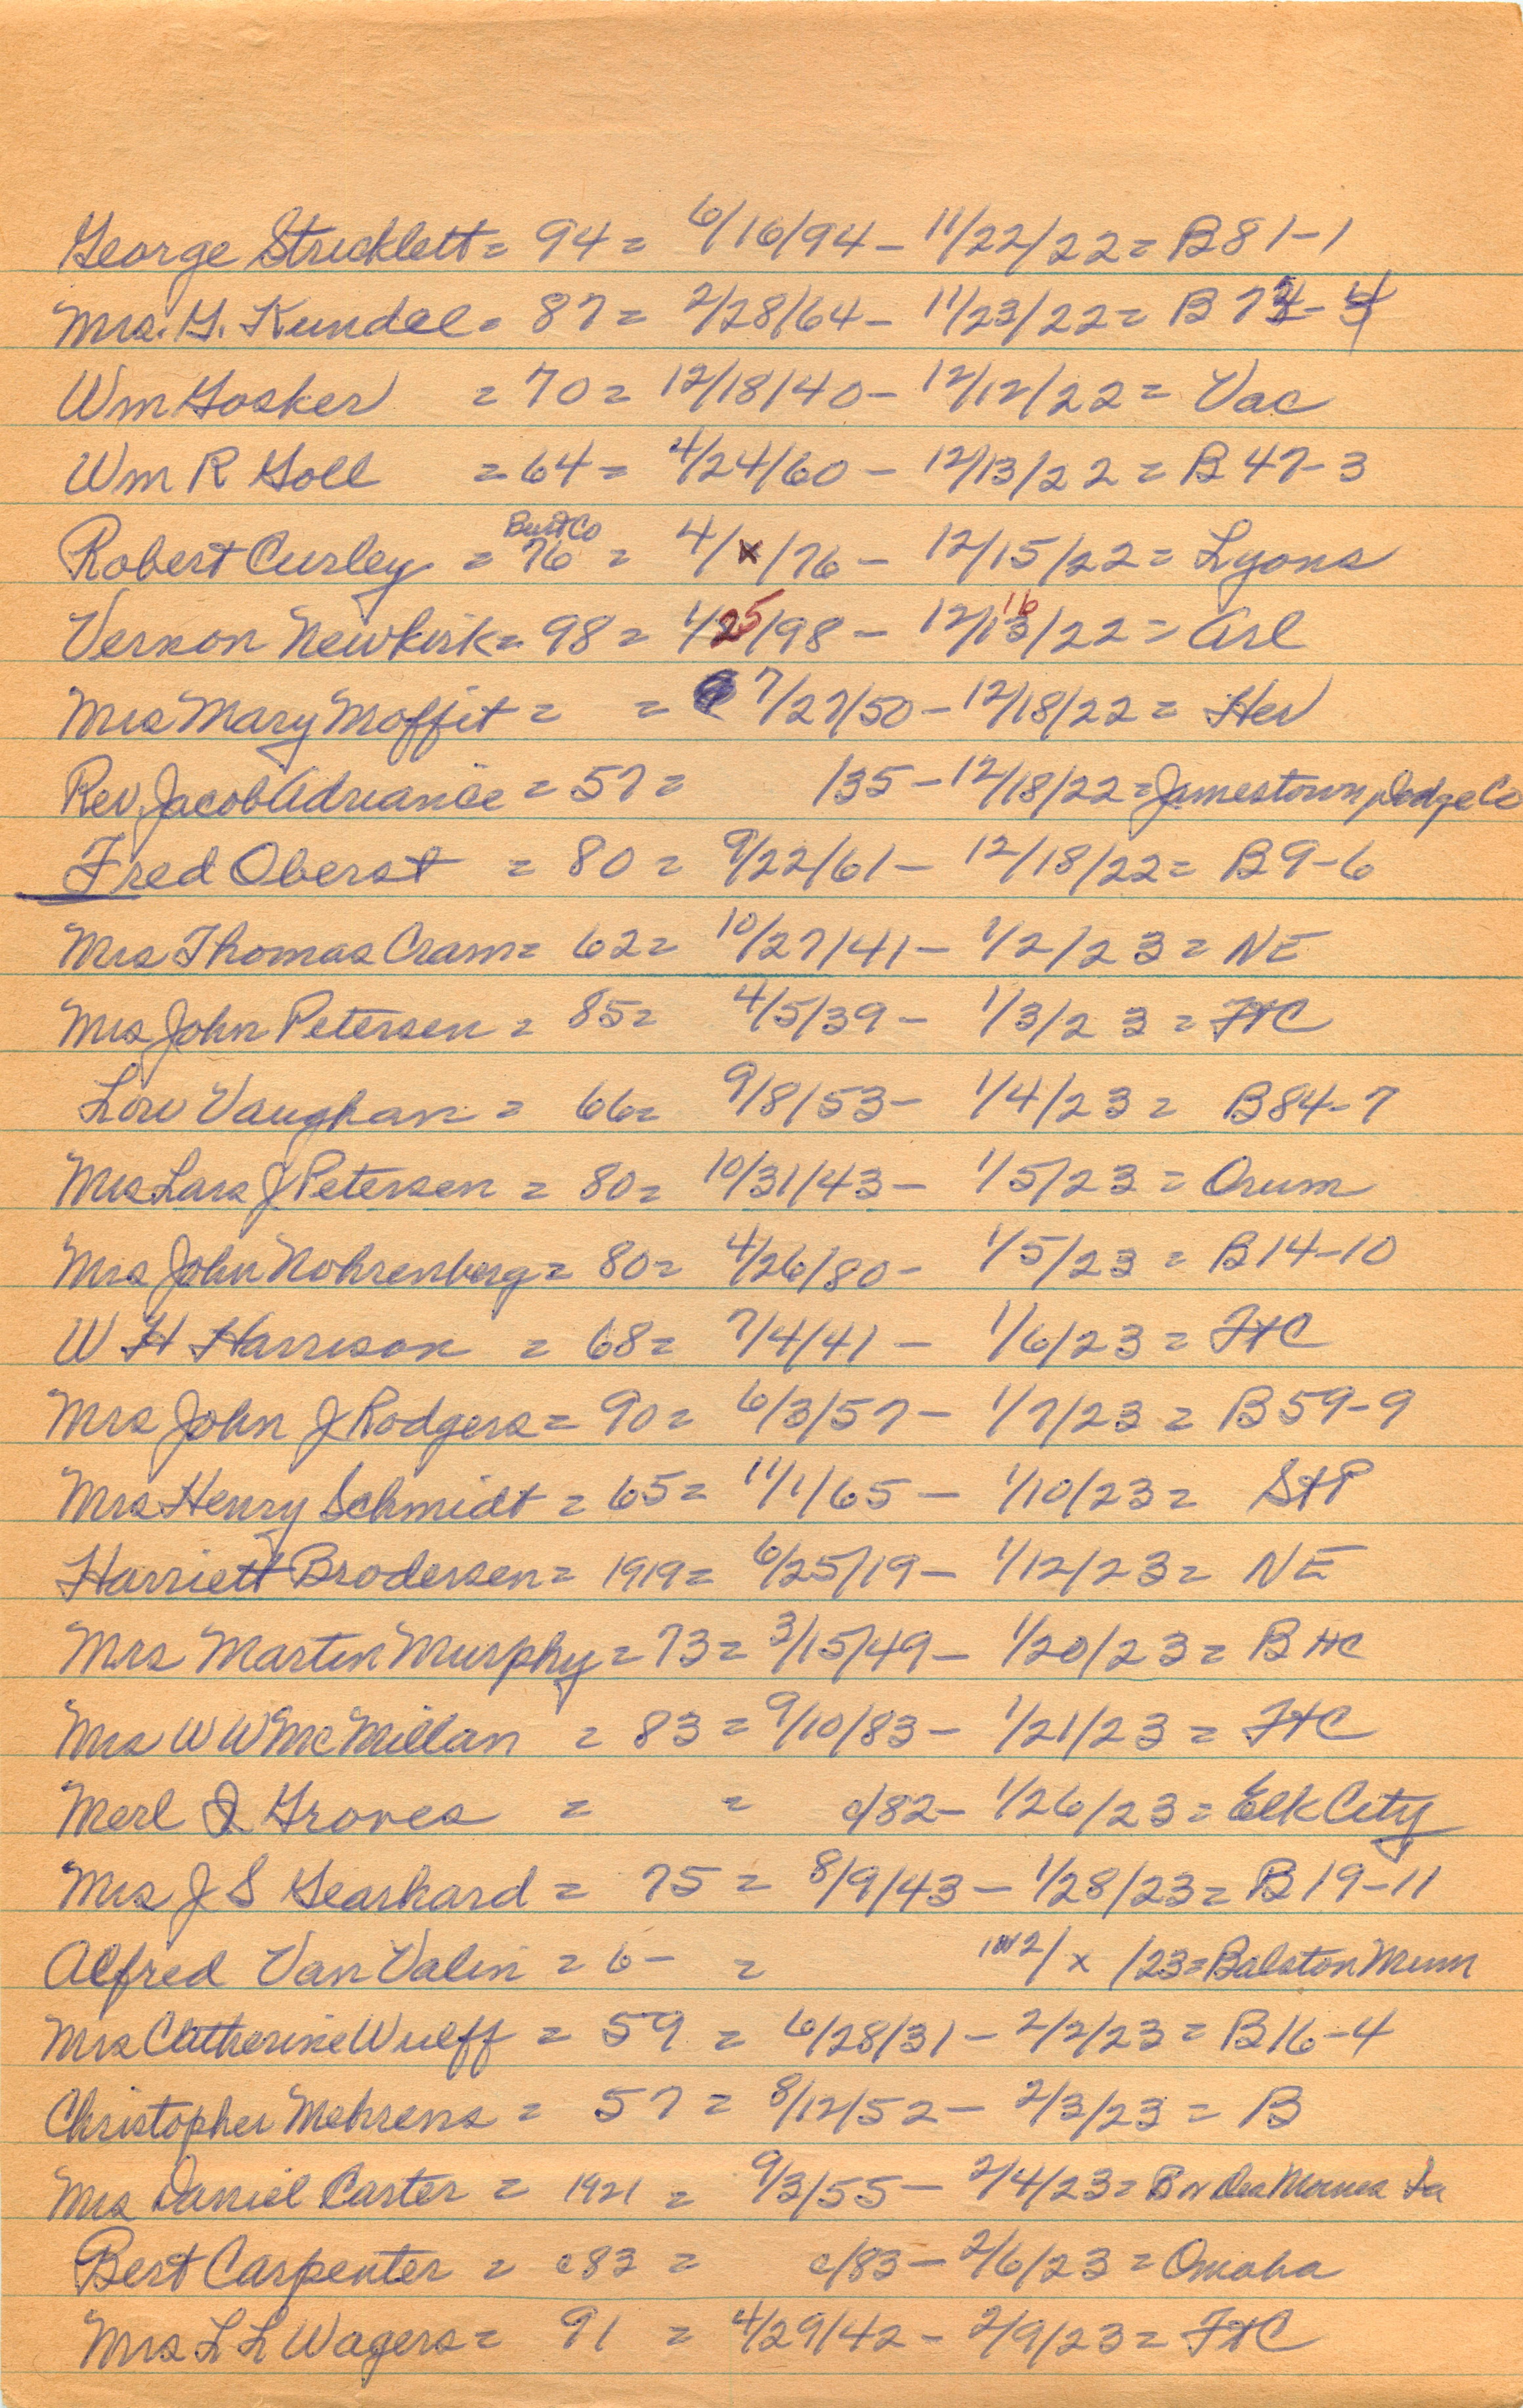 George Stricklett = 94 = 6/16/94 - 11/22/22 = B81-1
Mrs. G. Kundel = 87 = 2/28/64 - 11/23/22 = B 7
Wm Gosker = 70 = 12/18/40 - 12/12/22 = Vac
Wm R Goll = 64 = 4/24/60 - 12/13/22 = B 47-3
Burt Co
Robert Curley = 76 = 4/x/76 - 12/15/22 = Lyons
Vernon Newkirk = 98 = 1/25/98 - 12/16/22 = Arl
Mrs Mary Moffit = = 7/27/50 - 12/18/22 = Her
Rev. Jacob Adriance = 57 = /35 - 12/18/22 = Jamestown, Dodge Co
Fred Oberst = 80 = 9/22/61 - 12/18/22 = B9-6
Mrs Thomas Cram = 62 = 10/27/41 - 1/2/23 = NE
Mrs John Petersen = 85 = 4/5/39 - 1/3/23 = FtC
Low Vaughan = 66 = 9/8/53 - 1/4/23 = B84-7
Mrs Lars J Petersen = 80 = 10/31/43 - 1/5/23 = Orum
Mrs John Nohrenberg = 80 = 4/26/80 - 1/5/23 = B14-10
W H Harrison = 68 = 7/4/41 - 1/6/23 = FtC
Mrs John J Rodgers = 90 = 6/3/57 - 1/7/23 = B59-9
Mrs Henry Schmidt = 65 = 11/1/65 - 1/10/23 = StP
Harriett Brodersen = 1919 = 6/25/19 - 1/12/23 = NE
Mrs Martin Murphy = 73 = 3/15/49 - 1/20/23 = B HC
Mrs W W McMillan = 83 = 9/10/83 - 1/21/23 = FtC
Merl I Groves = = c/82 - 1/26/23 = Elk City
Mrs J S Gearhard = 75 = 8/9/43 - 1/28/23 = B19-11
Alfred Van Valin = 6- = 1 or 2/x/23 = Balston Minn
Mrs Catherine Wulff = 59 = 6/28/31 - 2/2/23 = B16-4
Christopher Mehrens = 57 = 8/12/52 - 2/3/23 = B
Mrs Daniel Carter = 1921 = 9/3/55 - 2/4/23 = B or Des Moines Ia
Bert Carpenter = c83 = c/83 - 2/6/23 = Omaha
Mrs L L Wagers = 91 = 4/29/42 - 2/9/23 = FtC